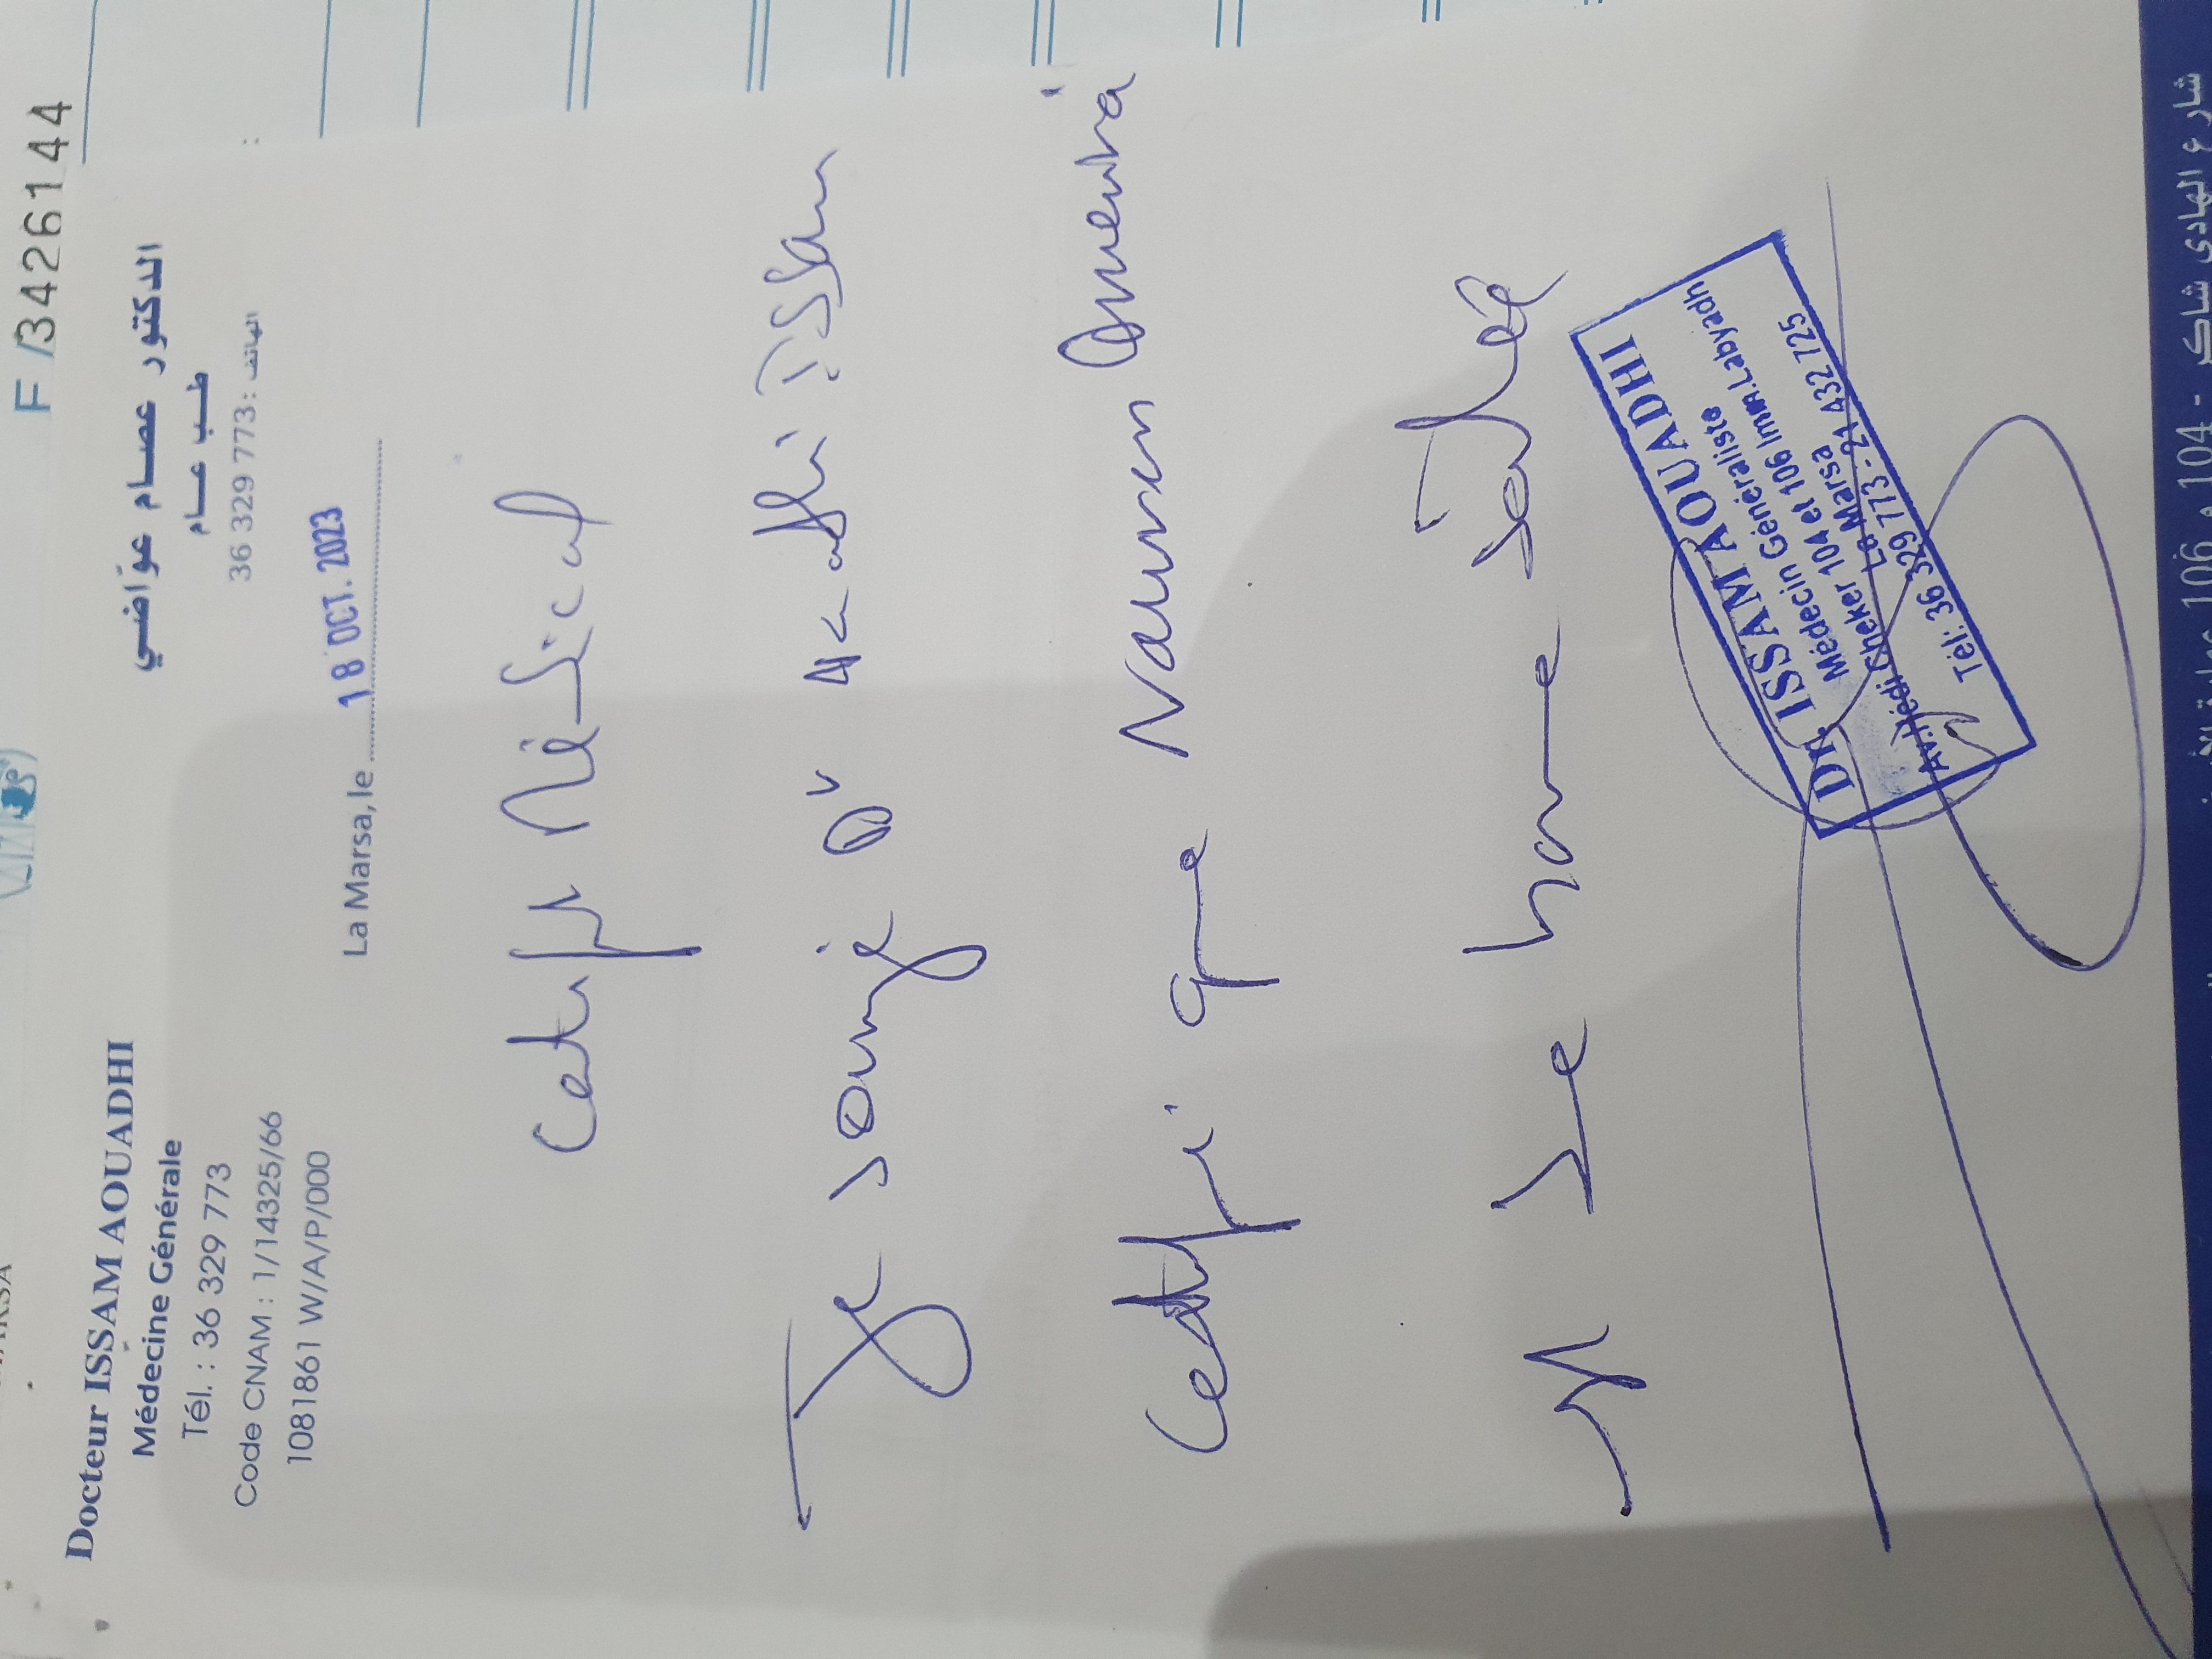 F /3426144
Docteur ISSAM AOUADHI
Médecine Générale
Tél. : 36 329 773
Code CNAM : 1/14325/66
1081861 W/A/P/000
الدكتور عصام عوّاضي
طب عام
الهاتف: 36 329 773
La Marsa, le 18 OCT. 2023
Certificat Médical
Je soussigné Dr Aouadhi Issam
Certifie que
est de bonne santé
Dr. ISSAM AOUADHI
Médecin Généraliste
Av. Hédi Cheker 104 et 106 Imm. Labyadh
La Marsa
Tél: 36 329 773 - 21 432 725
شارع الهادي شاكر - 104 و 106 عمارة